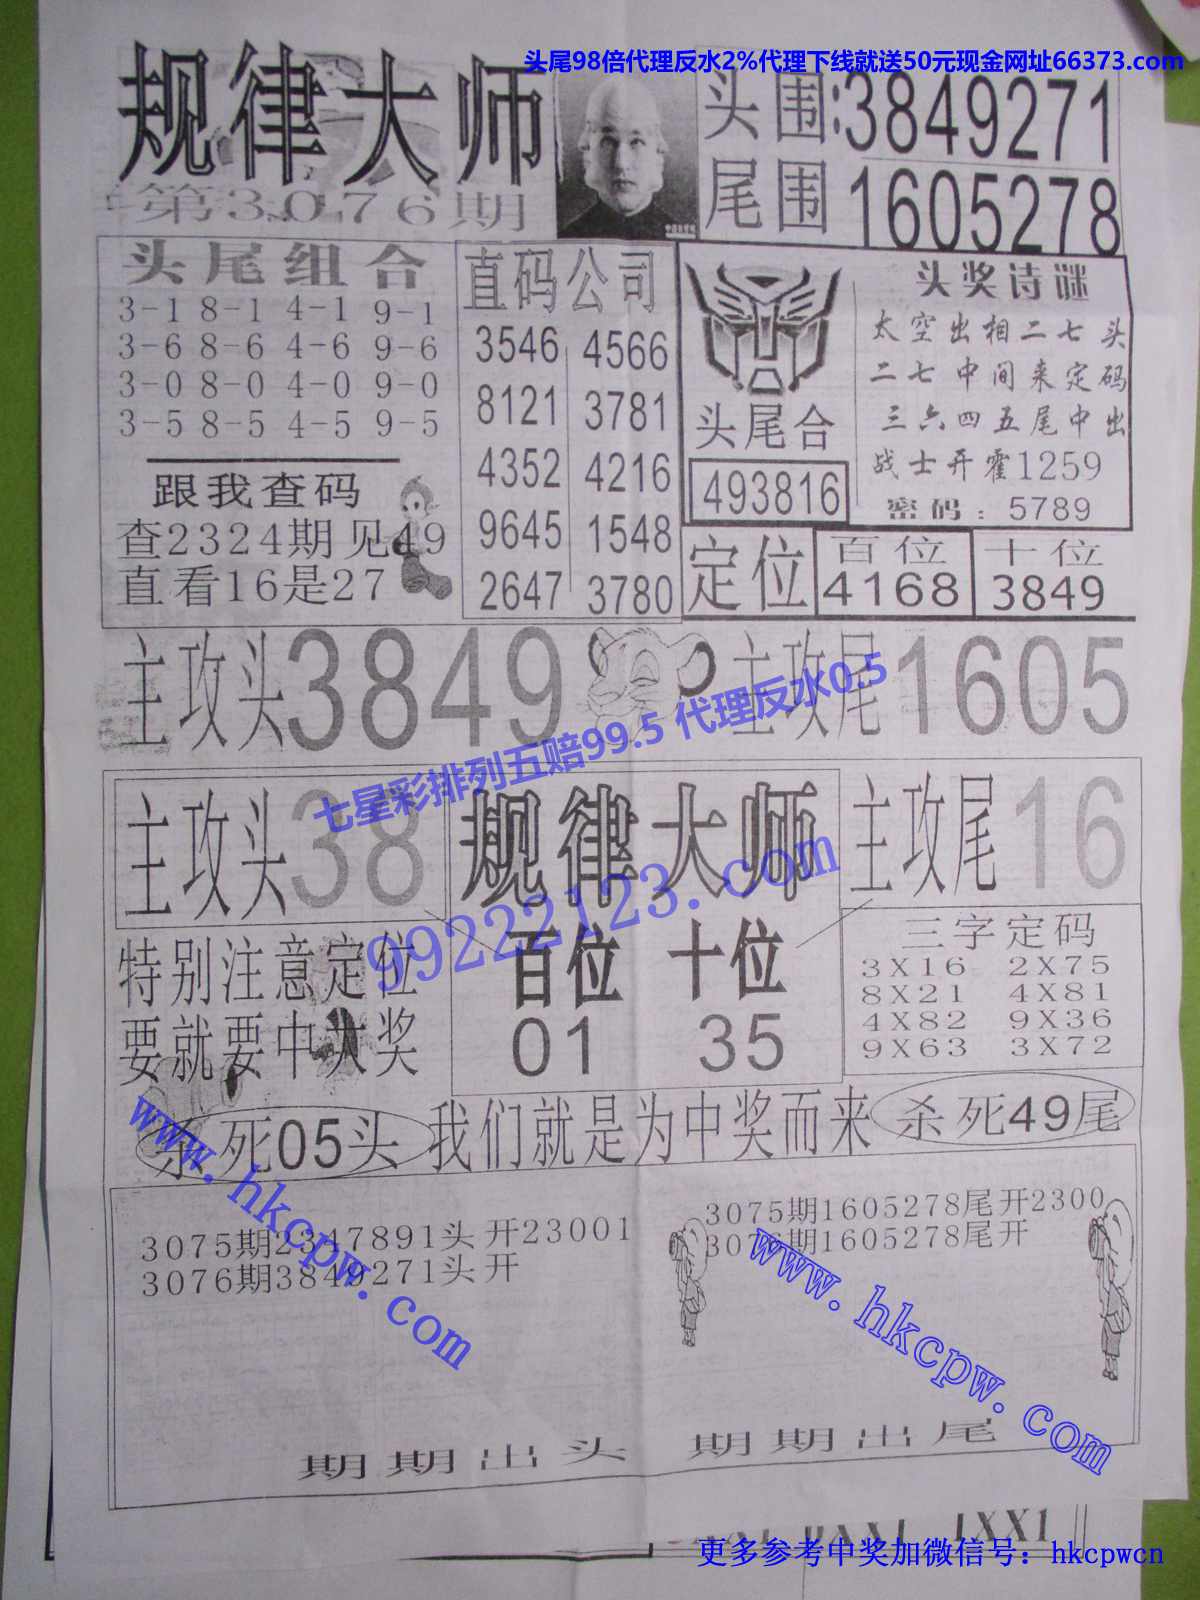 头尾98倍代理反水2%代理下线就送50元现金网址66373.com
规律大师
第3076期
头围:3849271
尾围 1605278
头尾组合
3-1 8-1 4-1 9-1
3-6 8-6 4-6 9-6
3-0 8-0 4-0 9-0
3-5 8-5 4-5 9-5
跟我查码
查2324期见49
直看16是27
直码公司
3546 4566
8121 3781
4352 4216
9645 1548
2647 3780
头尾合
493816
头奖诗谜
太空出相二七头
二七中间来定码
三六四五尾中出
战士开霍1259
密码:5789
定位
百位
4168
十位
3849
主攻头3849
主攻尾1605
七星彩排列五赔99.5 代理反水0.5
99222123.com
主攻头38
规律大师
主攻尾16
特别注意定位
要就要中大奖
百位 十位
01 35
三字定码
3X16 2X75
8X21 4X81
4X82 9X36
9X63 3X72
杀死05头
我们就是为中奖而来
杀死49尾
3075期2347891头开23001
3076期3849271头开
3075期1605278尾开2300
3076期1605278尾开
www.hkcpw.com
www.hkcpw.com
期期出头 期期出尾
1XX1
更多参考中奖加微信号：hkcpwcn